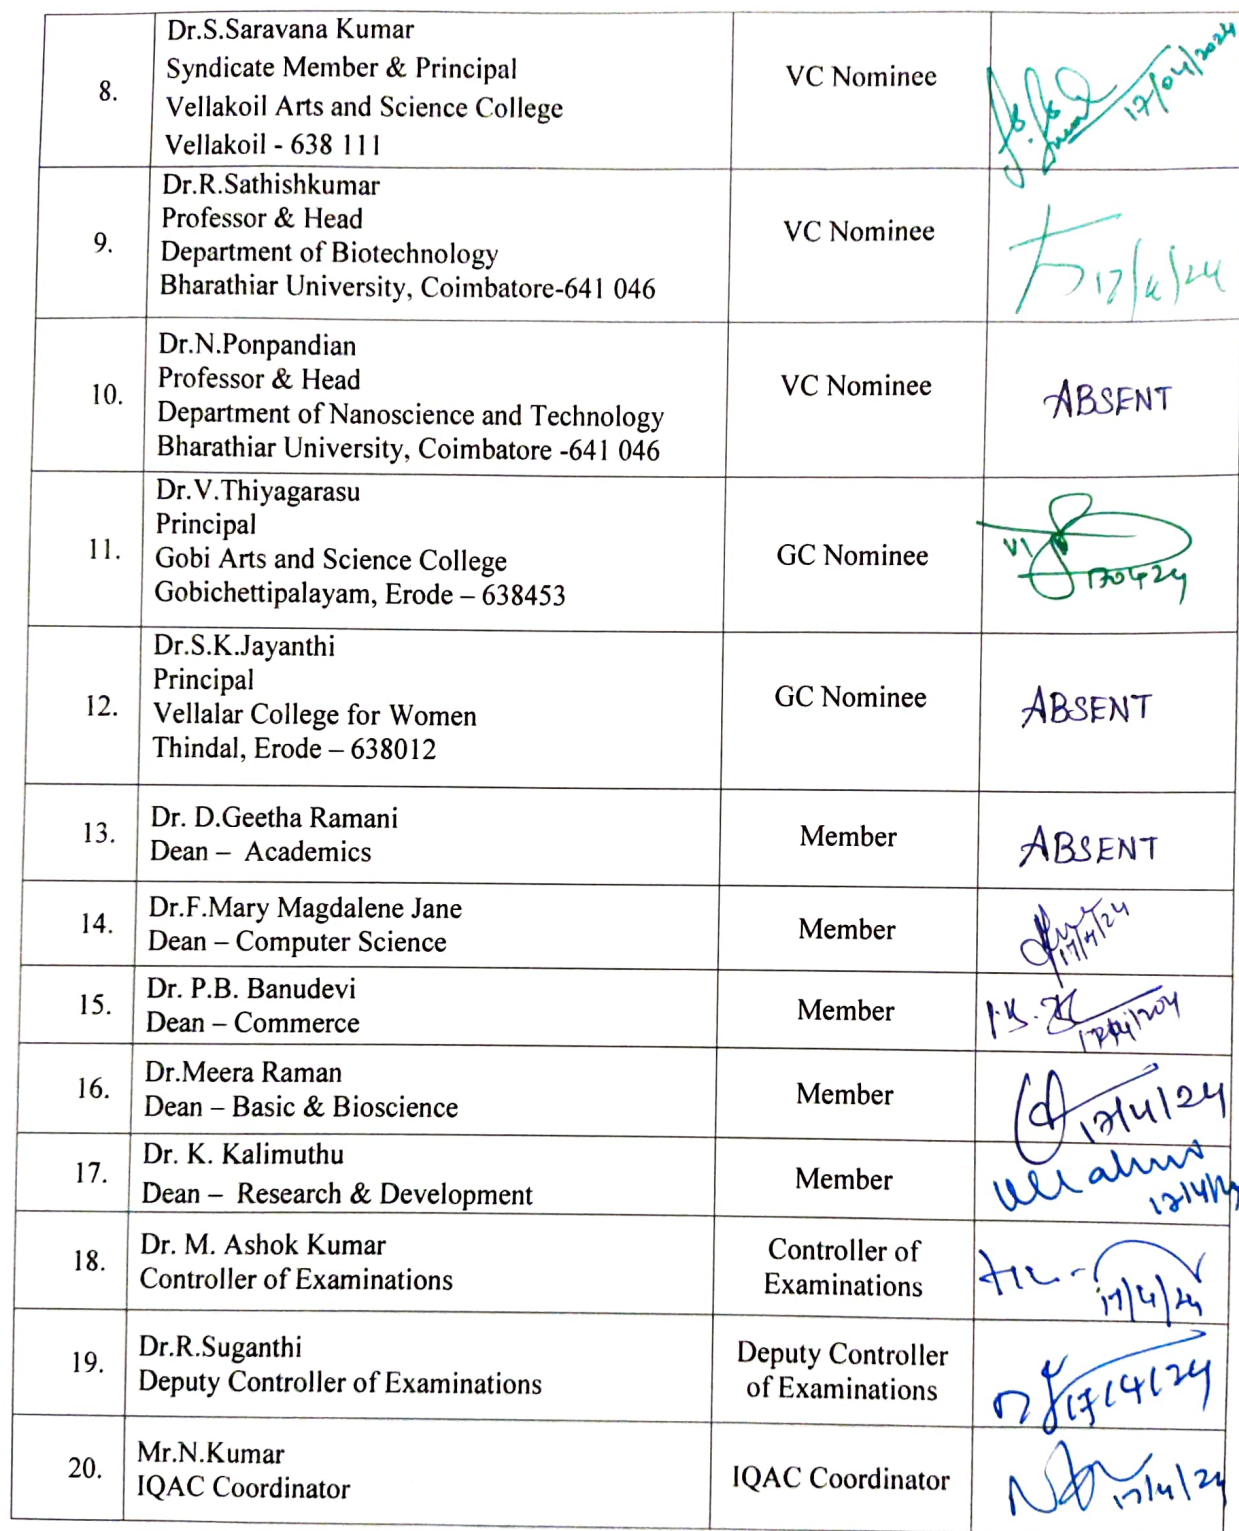 8.
Dr.S.Saravana Kumar
Syndicate Member & Principal
Vellakoil Arts and Science College
Vellakoil - 638 111
VC Nominee
17/04/2024
9.
Dr.R.Sathishkumar
Professor & Head
Department of Biotechnology
Bharathiar University, Coimbatore-641 046
VC Nominee
17/4/24
10.
Dr.N.Ponpandian
Professor & Head
Department of Nanoscience and Technology
Bharathiar University, Coimbatore -641 046
VC Nominee
ABSENT
11.
Dr.V.Thiyagarasu
Principal
Gobi Arts and Science College
Gobichettipalayam, Erode – 638453
GC Nominee
170424
12.
Dr.S.K.Jayanthi
Principal
Vellalar College for Women
Thindal, Erode – 638012
GC Nominee
ABSENT
13.
Dr. D.Geetha Ramani
Dean – Academics
Member
ABSENT
14.
Dr.F.Mary Magdalene Jane
Dean – Computer Science
Member
17/4/24
15.
Dr. P.B. Banudevi
Dean – Commerce
Member
16.
Dr.Meera Raman
Dean – Basic & Bioscience
Member
17/4/24
17.
Dr. K. Kalimuthu
Dean – Research & Development
Member
18.
Dr. M. Ashok Kumar
Controller of Examinations
Controller of
Examinations
17/4/24
19.
Dr.R.Suganthi
Deputy Controller of Examinations
Deputy Controller
of Examinations
17/4/24
20.
Mr.N.Kumar
IQAC Coordinator
IQAC Coordinator
17/4/24